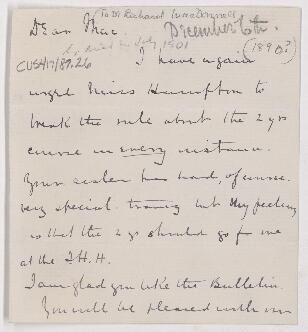 (To Dr Richard MacDonnell
Dear Mac.
December 6th.
(1890?)
died in July, 1901
CUS417/87.26
I have again
urged Miss Hampton to
break the rule about the 2 yrs
course in every instance.
Your sister has had, of course,
very special training but my feeling
is that the 2 yrs should go for one
at the J.H.H.
I am glad you like the Bulletin.
You will be pleased with our